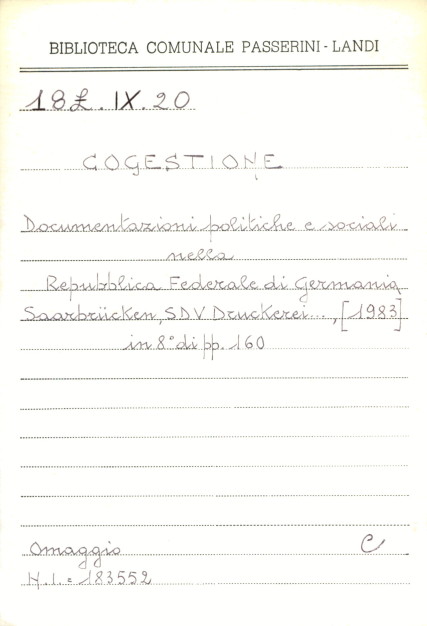 BIBLIOTECA COMUNALE PASSERINI - LANDI
18£. IX. 20
COGESTIONE
Documentazioni politiche e sociali
nella
Repubblica Federale di Germania
Saarbrücken, SDV Druckerei..., [1983]
in 8° di pp. 160
Omaggio C
N.I. = 183552